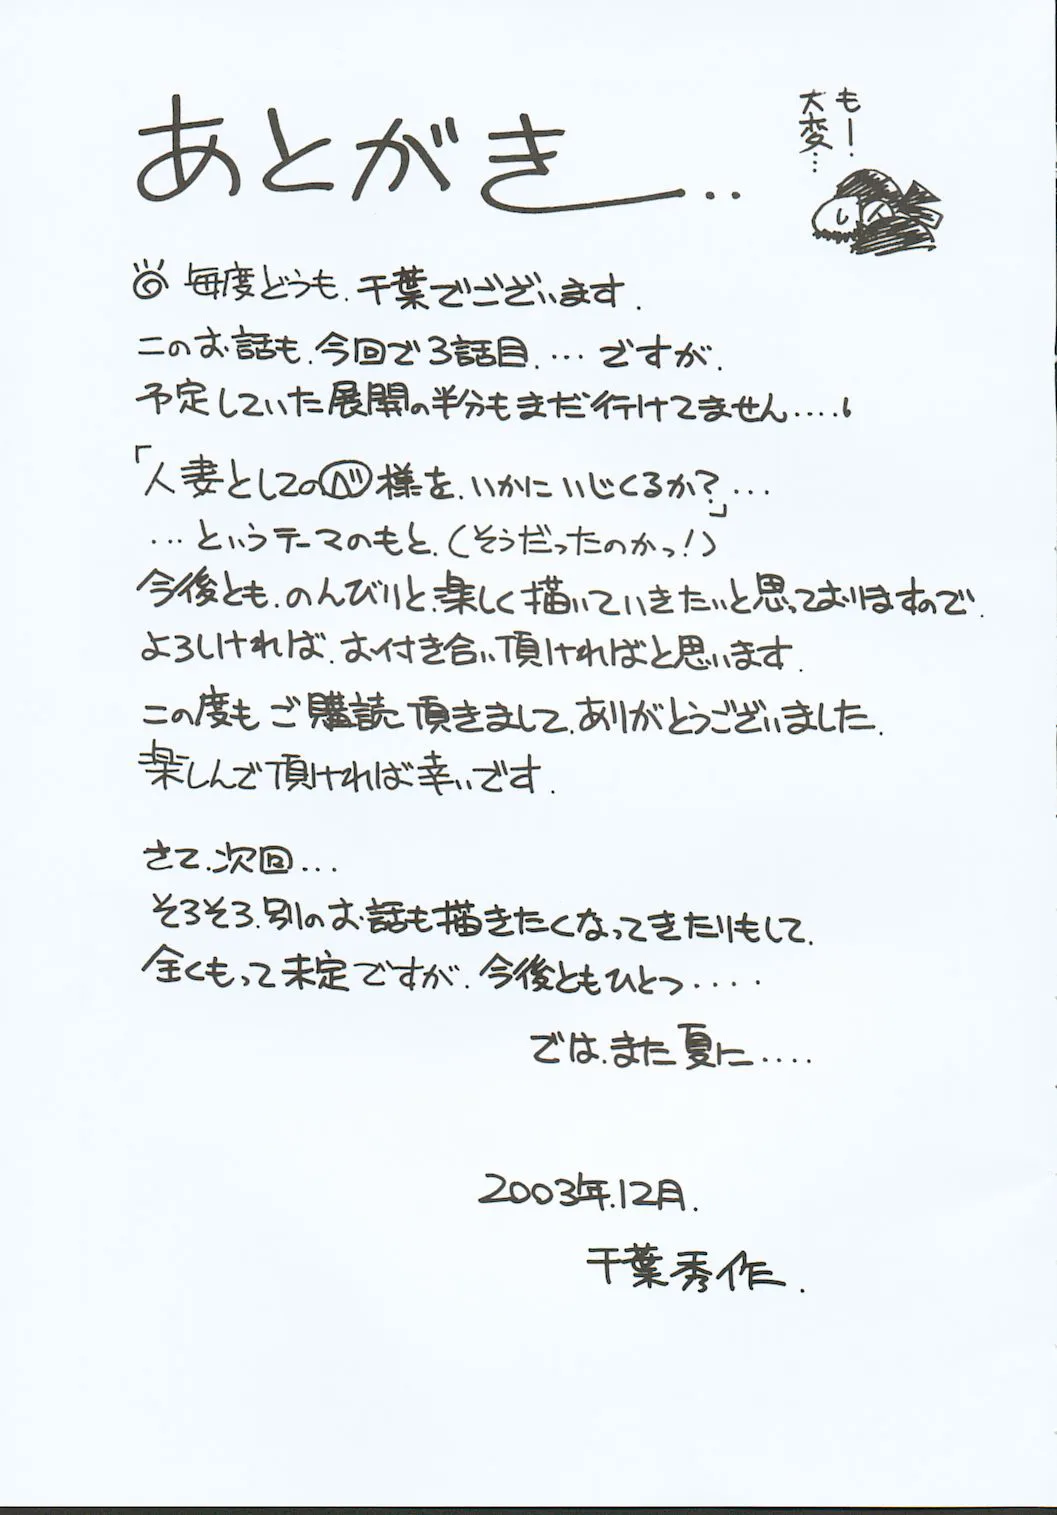 あとがき..
もー
大変…
◎毎度どうも.千葉でございます.
このお話も.今回で3話目.…ですが.
予定していた展開の半分もまだ行けてません....
「人妻としてのべ様を.いかにいじくるか?」…
…というテーマのもと.(そうだったのかっ!)
今後とも.のんびりと.楽しく描いていきたいと思っておりますので.
よろしければ.お付き合い頂ければと思います.
この度もご購読頂きまして.ありがとうございました.
楽しんで頂ければ幸いです.
さて.次回...
そろそろ.別のお話も描きたくなってきたりもして.
全くもって未定ですが.今後ともひとつ....
では.また夏に....
2003年.12月.
千葉秀作.